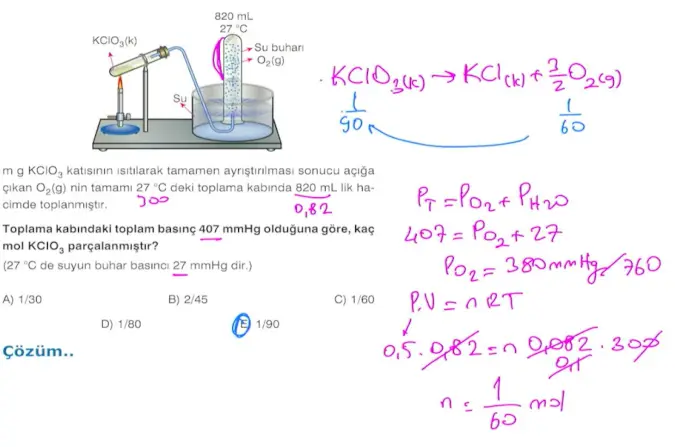 820 mL
27 °C
KClO₃(k)
Su buharı
O₂(g)
Su
m g KClO₃ katısının ısıtılarak tamamen ayrıştırılması sonucu açığa
çıkan O₂(g) nin tamamı 27 °C deki toplama kabında 820 mL lik ha-
cimde toplanmıştır.
300
0,82
Toplama kabındaki toplam basınç 407 mmHg olduğuna göre, kaç
mol KClO₃ parçalanmıştır?
(27 °C de suyun buhar basıncı 27 mmHg dir.)
A) 1/30 B) 2/45 C) 1/60
D) 1/80 E) 1/90
Çözüm..
KClO₃(k) → KCl(k) + 3/2 O₂(g)
1/90 1/60
P_T = P_O₂ + P_H₂O
407 = P_O₂ + 27
P_O₂ = 380 mmHg / 760
P.V = n R T
0,5 . 0,82 = n 0,082 . 300
0,1
n = 1/60 mol